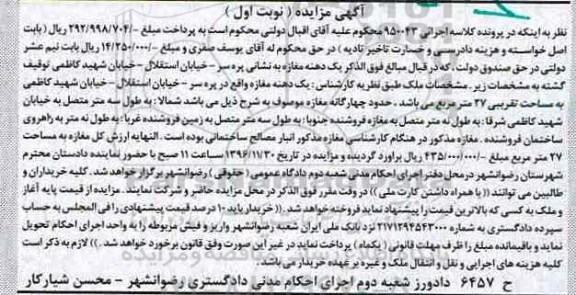 آگهی مزایده ( نوبت اول )
نظر به اینکه در پرونده کلاسه اجرائی ۹۵۰۰۴۳ محکوم علیه آقای اقبال دولتی محکوم است به پرداخت مبلغ -/۲۹۲/۹۹۸/۷۰۴ ریال ( بابت
اصل خواسته و هزینه دادرسی و خسارت تاخیر تادیه ) در حق محکوم له آقای یوسف صفری و مبلغ -/۱۴/۲۵۰/۰۰۰ ریال بابت نیم عشر
دولتی در حق صندوق دولت، که در قبال مبالغ فوق الذکر یک دهنه مغازه به نشانی پره سر – خیابان استقلال – خیابان شهید کاظمی توقیف
گشته به مشخصات زیر. مشخصات ملک طبق نظریه کارشناس : یک دهنه مغازه واقع در پره سر – خیابان استقلال – خیابان شهید کاظمی
به مساحت تقریبی ۲۷ متر مربع می باشد . حدود چهارگانه مغازه موصوف به شرح ذیل می باشد شمالا : به طول سه متر متصل به خیابان
شهید کاظمی شرقا : به طول نه متر متصل به مغازه فروشنده جنوبا : به طول سه متر متصل به زمین فروشنده غربا : به طول نه متر به راهروی
ساختمان فروشنده . مغازه مذکور در هنگام کارشناسی مغازه مذکور انبار مصالح ساختمانی بوده است . النهایه ارزش کل مغازه به مساحت
۲۷ متر مربع مبلغ -/۴۳۵/۰۰۰/۰۰۰ ریال برآورد گردیده و مزایده در تاریخ ۱۳۹۶/۱۱/۳۰ ساعت ۱۱ صبح با حضور نماینده دادستان محترم
شهرستان رضوانشهر در محل دفتر اجرای احکام مدنی شعبه دوم دادگاه عمومی ( حقوقی ) رضوانشهر برگزار خواهد شد . کلیه خریداران و
طالبین می توانند (( با همراه داشتن کارت ملی )) در وقت مقرر فوق الذکر در محل مزایده حاضر و شرکت نمایند . مزایده از قیمت پایه آغاز
و ملک به کسی که بالاترین قیمت را پیشنهاد نماید فروخته خواهد شد. (( خریدار باید ۱۰ درصد قیمت پیشنهادی را فی المجلس به حساب
سپرده دادگستری به شماره ۲۱۷۱۲۹۴۵۴۳۰۰۰ نزد بانک ملی ایران شعبه رضوانشهر واریز و فیش مربوطه را به واحد اجرای احکام تحویل
نماید و باقیمانده مبلغ را ظرف مهلت قانونی ( یکماه ) پرداخت نماید در غیر این صورت وفق قانون برخورد خواهد شد . )) لازم به ذکر است
کلیه هزینه های اجرایی و نقل و انتقال ملک و غیره بر عهده خریدار می باشد
ح ۶۴۵۷ دادورز شعبه دوم اجرای احکام مدنی دادگستری رضوانشهر – محسن شیارکار